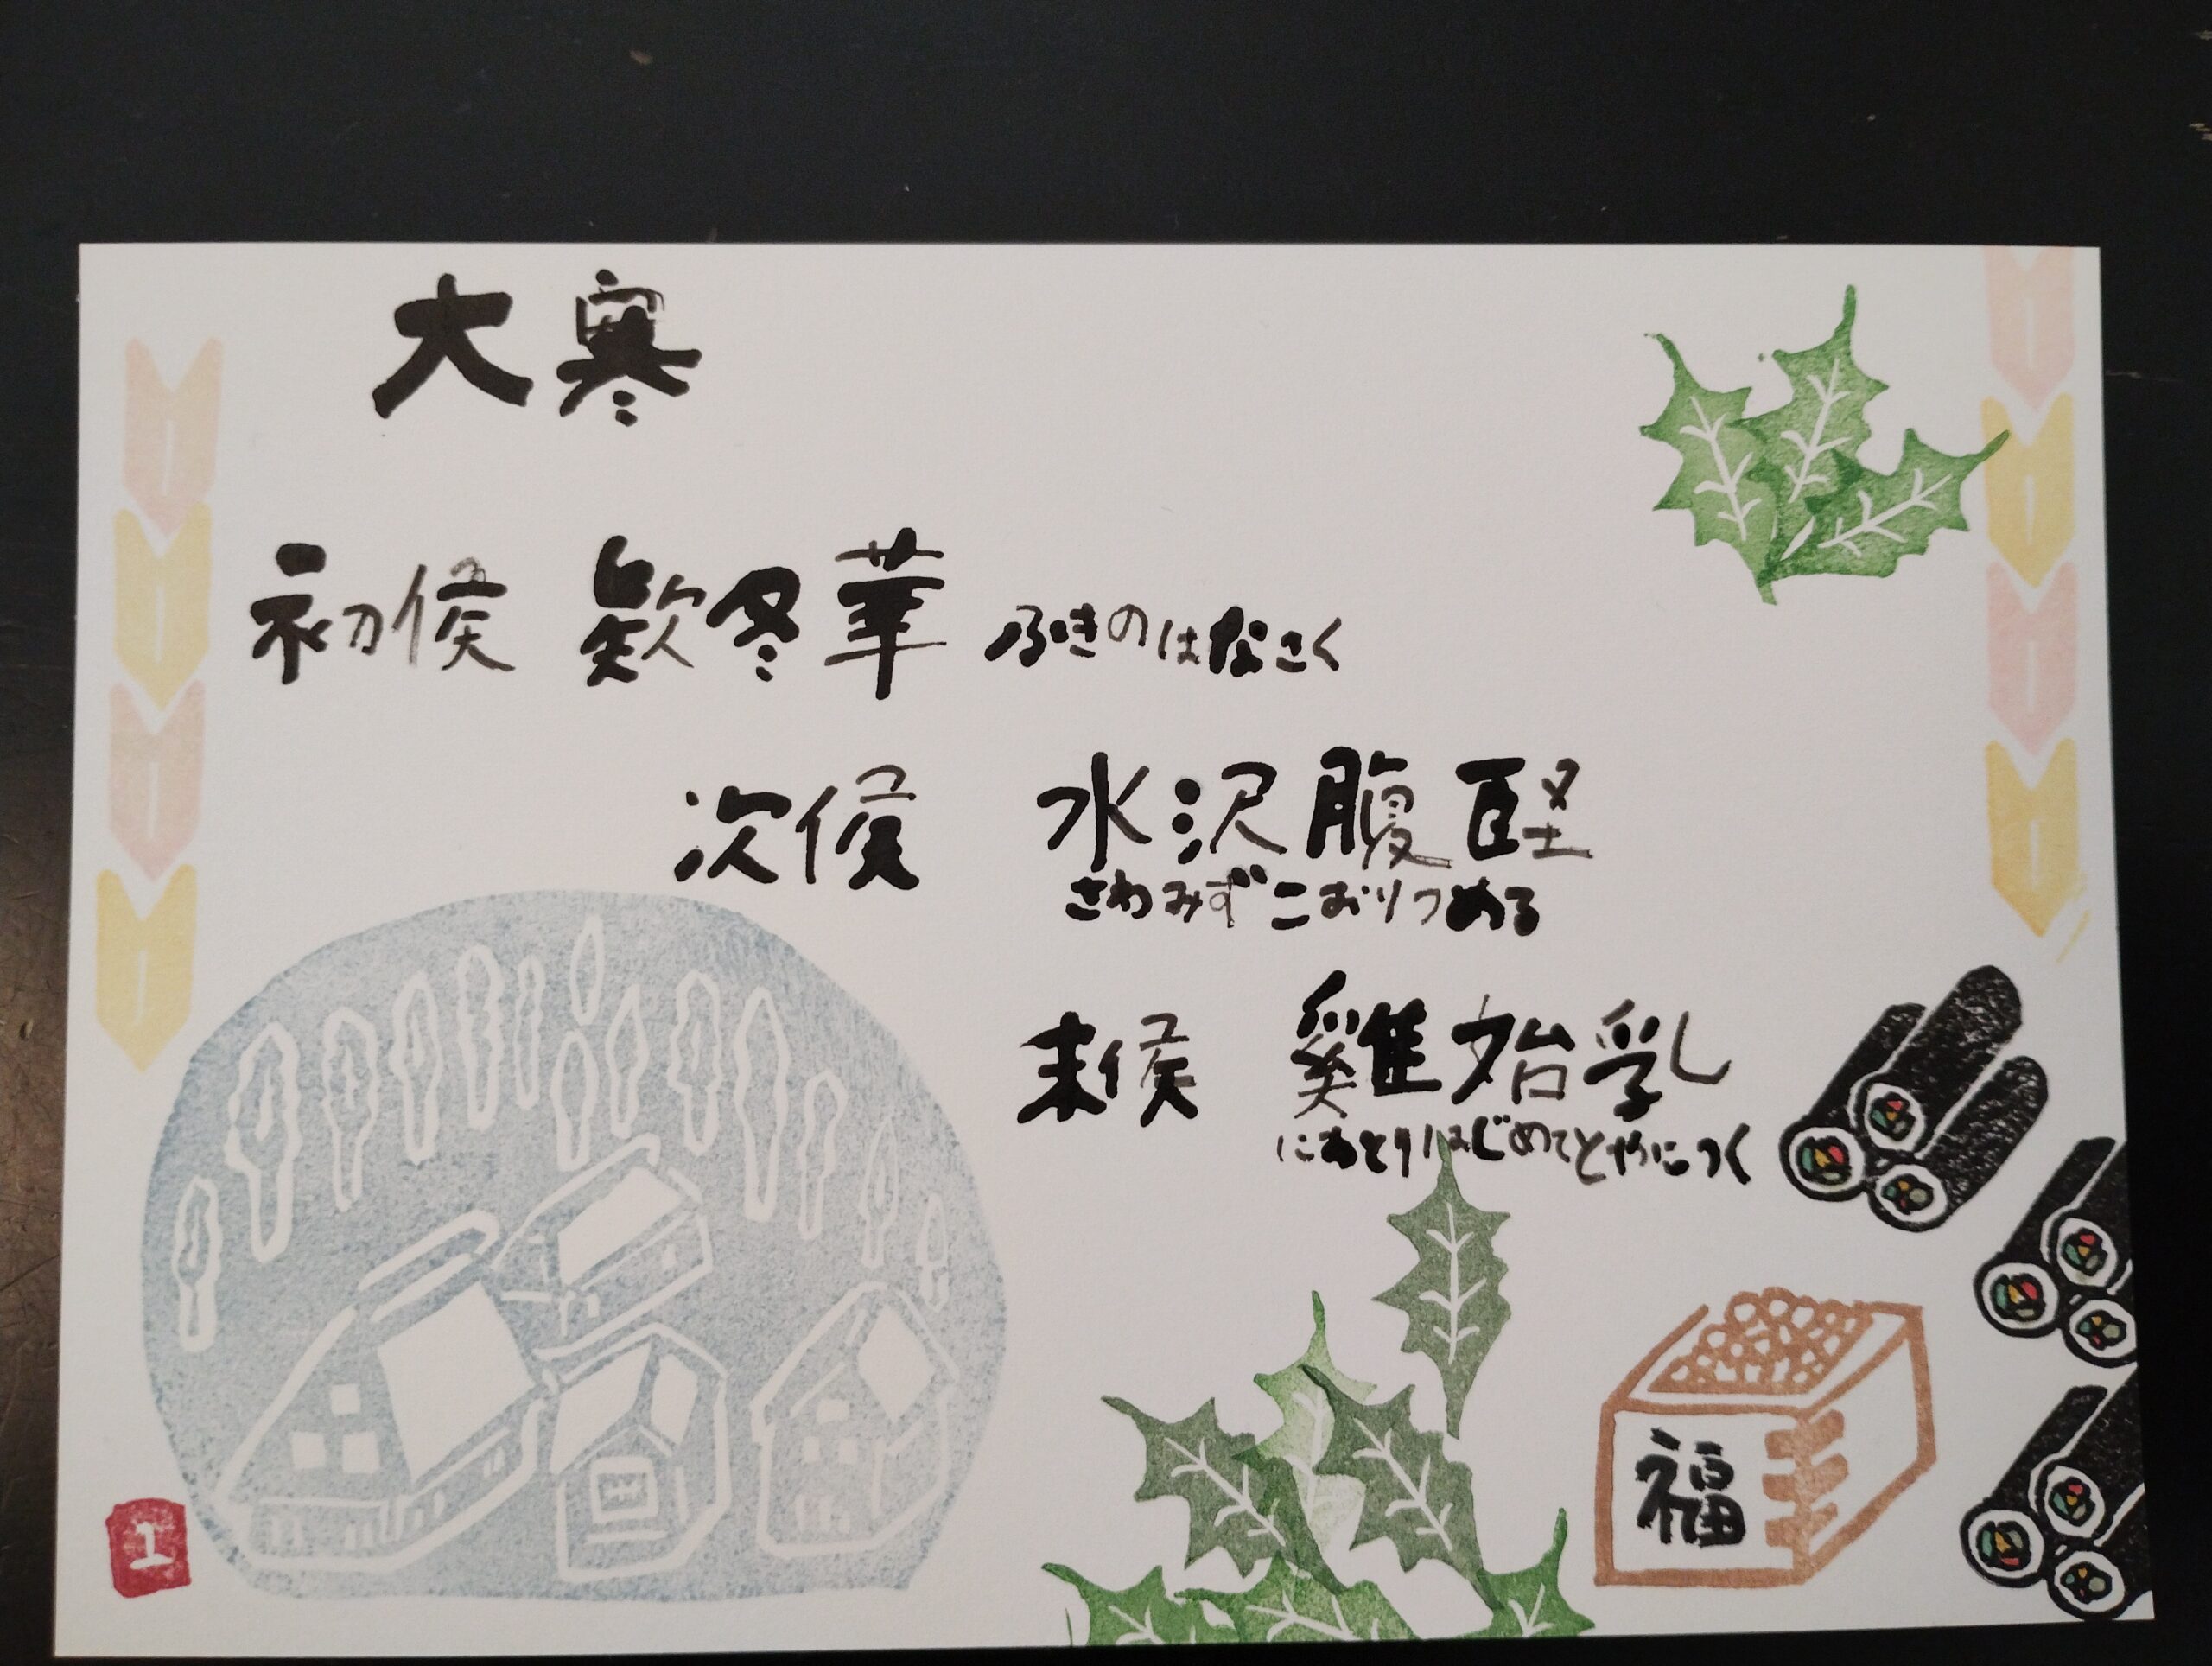 大寒
初侯 欵冬華 ふきのはなさく
次侯 水沢腹堅
さわみずこおりつめる
末侯 雞始乳
にわとりはじめてとやにつく
福
1